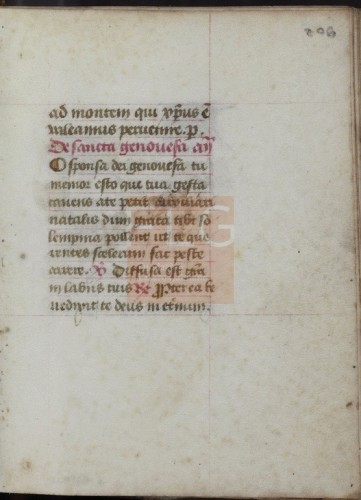 206
ad montem qui xp̄us ē
valeamus peruenire. P.
De sancta genouefa añ
O sponsa dei genouefa tu
memor esto que tua gesta
canens a te petit
natalis dum grata tibi so
lempnia pollent ut te que
rentes scelerum fac peste
carere. V Diffusa est grā
in labiis tuis R Propterea be
nedixit te deus in eternum.